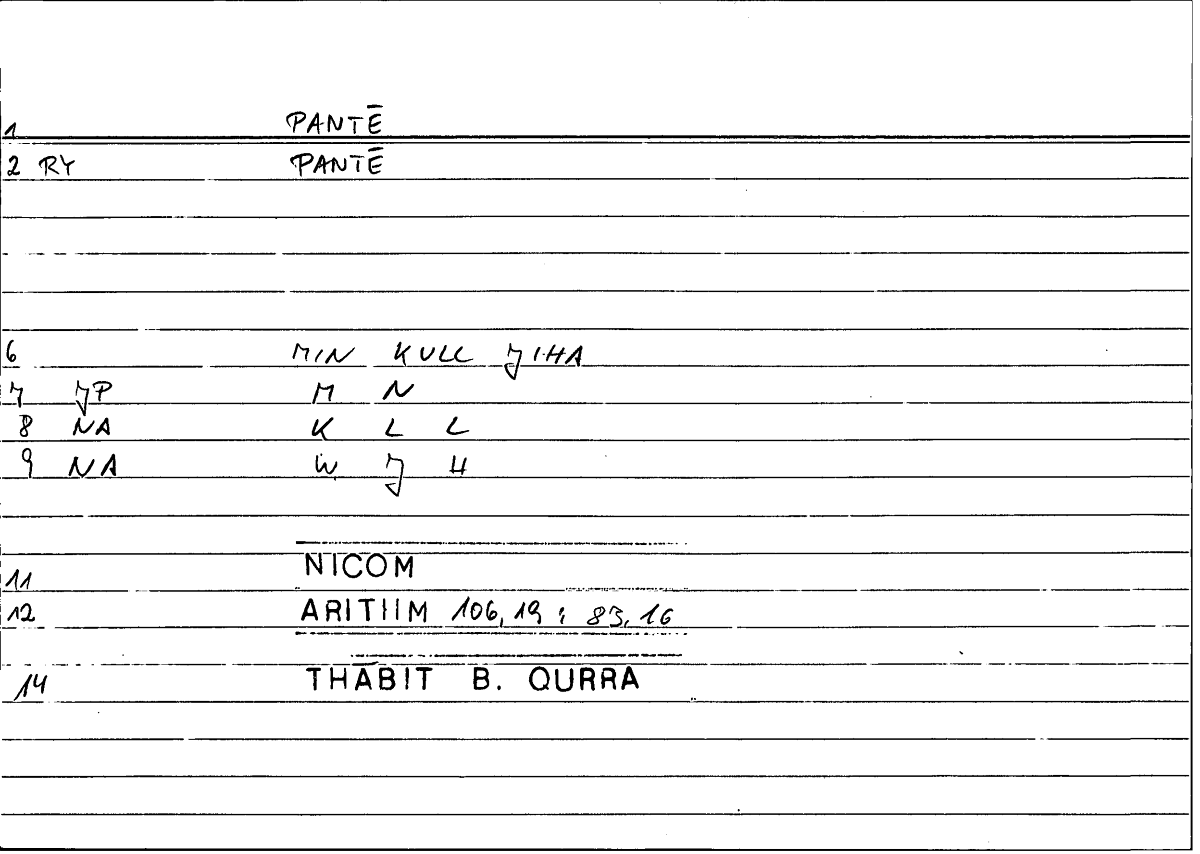 1 PANTĒ
2 RY PANTĒ
6 MIN KULL JIHA
7 JP M N
8 NA K L L
9 NA W J H
11 NICOM
12 ARITHM 106,19 : 83,16
14 THĀBIT B. QURRA